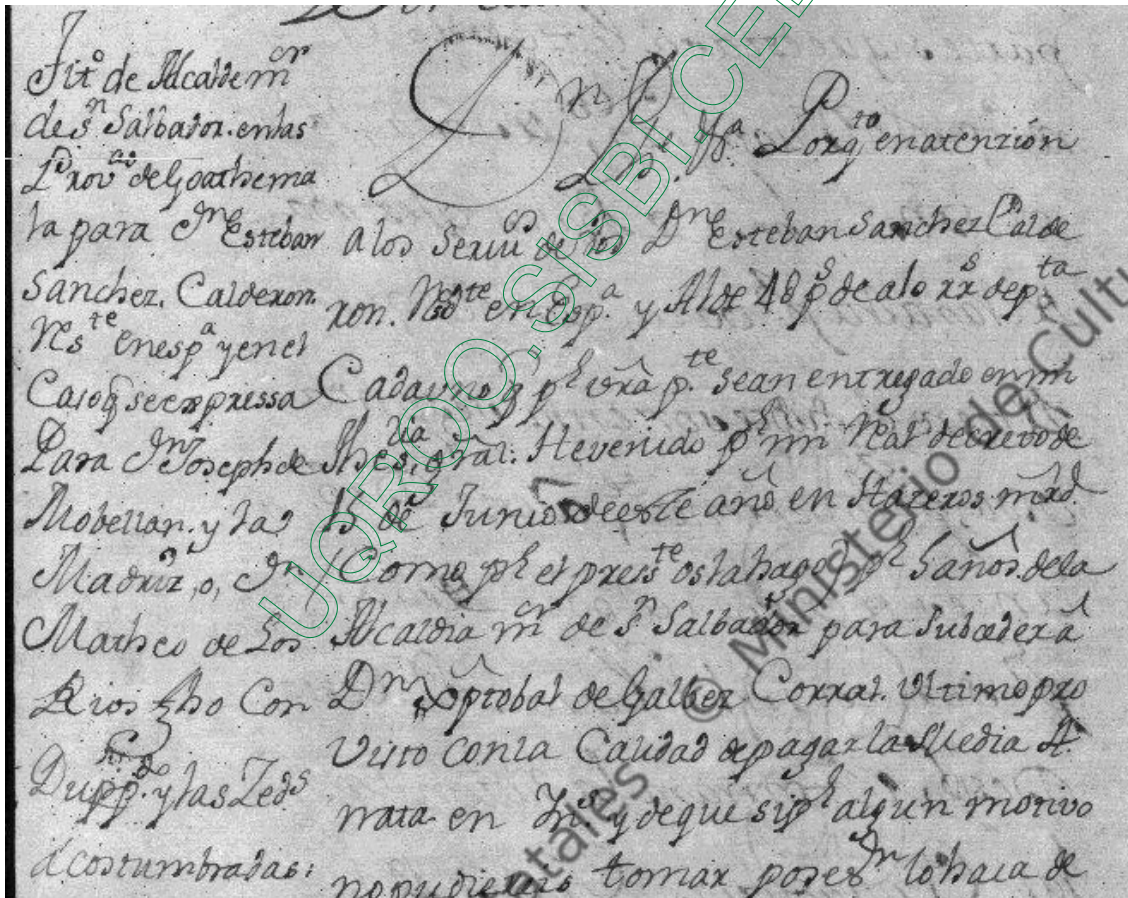 Titº de Alcalde mºr
de Sⁿ Salbador. en las
Provªs de Goathema
la para Dⁿ Esteban
Sanchez. Calderon.
Resᵗᵉ en espª y en el
Caso q se expressa
Para Dⁿ Joseph de
Mobellan. y la
Madriz, o, Dⁿ
Matheo de Los
Rios dho Con
Dupᵖᵈᵒ. y las Zeds
acostumbradas:
Dⁿ Phe Ph. Vª. Porqᵗᵒ en atenzion
a los Seruⁱᵒˢ de Vos Dⁿ Esteban Sanchez Calde
ron. Resᵗᵉ en Espª. y Al de 48 pˢ de a 10 rrˢ de pᵗᵃ
Cada uno q pʳ vrã pᵗᵉ. se an entregado en mi
Thesʳⁱᵃ, grãl. He venido pʳ mi Real decreto de
15 de Junio de este año en Hazeros mrd
Como pʳ el presᵗᵉ os la hago pʳ 5 años. de la
Alcaldia mºr de Sⁿ Salbador para Subceder â
Dⁿ Xptobal de Galbez Corral. Ultimo pro
visto con la Calidad de pagar la Media A
nata en Inˢ y de que si pʳ algun motivo
no pudiereis tomar posesºⁿ lo haga de
UQROO.SISBI.CE
© Ministerio de Cultu
tales